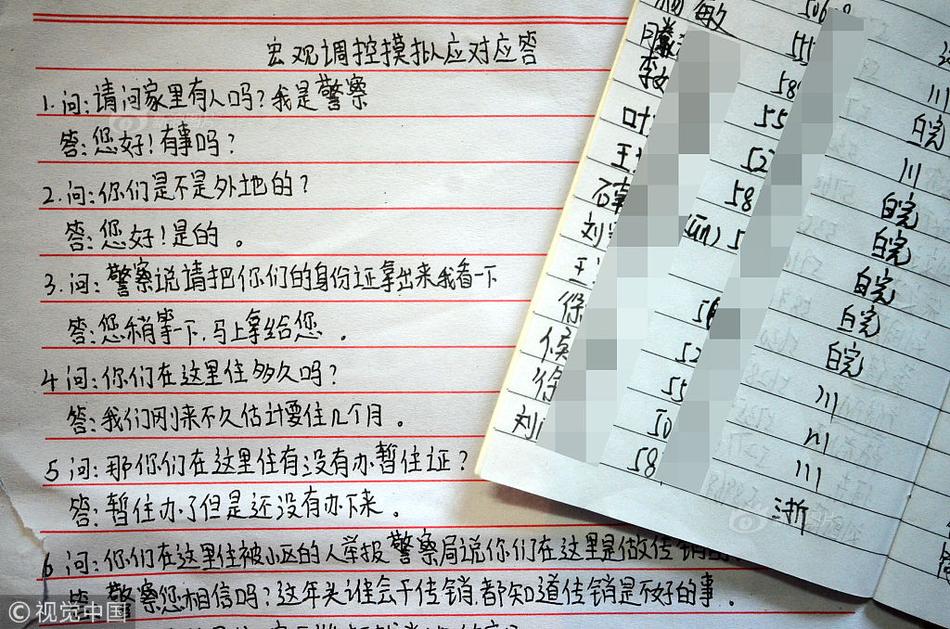 宏观调控摸拟应对应答
1.问:请问家里有人吗?我是警察
答:您好!有事吗?
2.问:你们是不是外地的?
答:您好!是的。
3.问:警察说请把你们的身份证拿出来我看一下
答:您稍等一下,马上拿给您。
4问:你们在这里住多久吗?
答:我们刚来不久估计要住几个月。
5问:那你们在这里住有没有办暂住证?
答:暂住办了但是还没有办下来。
6问:你们在这里住被小区的人举报警察局说你们在这里是做传销
答:警察您相信吗?这年头谁会干传销,都知道传销是不好的事。
敏
李
川
叶 55 皖
王 52 川
石 58 皖
刘 皖
王 皖
徐 皖
侯 52 皖
徐 55 川
刘 50 川
58 川
浙
©视觉中国